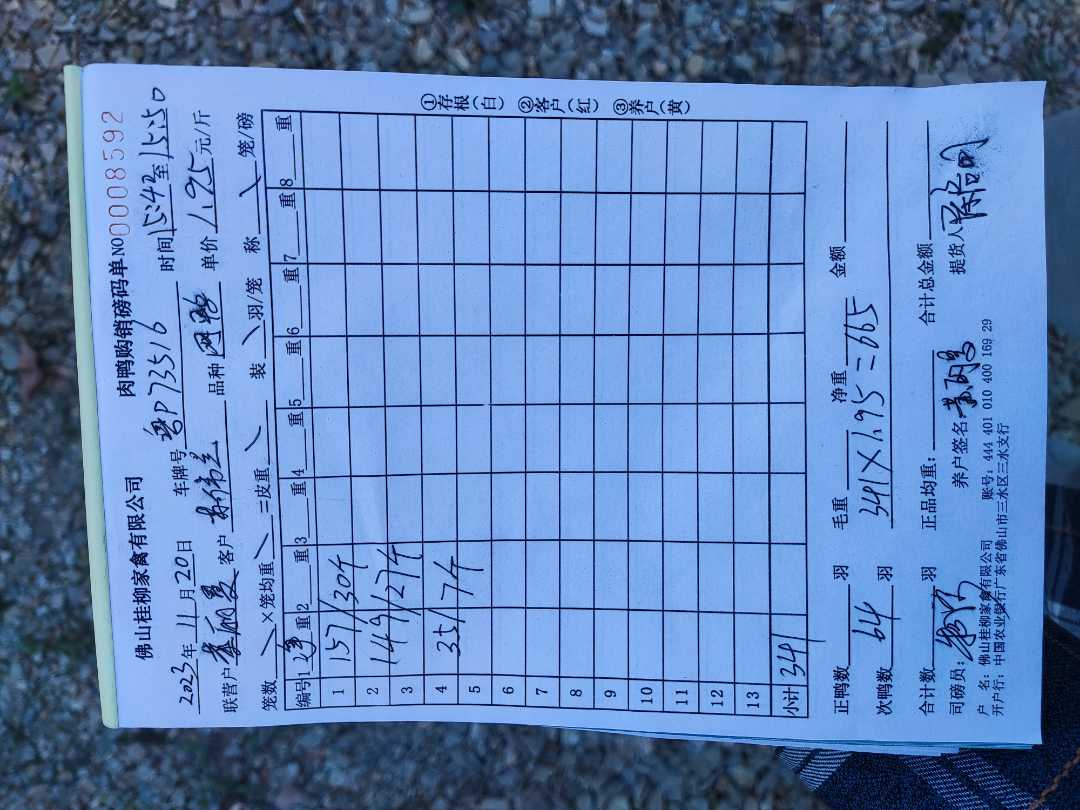 佛山桂柳家禽有限公司 肉鸭购销磅码单 NO 0008592
2023年11月20日 车牌号 粤P73516 时间15:42至15:50
联营户 客户 品种 单价1.95元/斤
笼数 × 笼均重 =皮重 装 羽/笼 称 笼/磅
编号 1 重 2 重 3 重 4 重 5 重 6 重 7 重 8 重
1 157/30只
2 149/27只
3
4 35/7只
5
6
7
8
9
10
11
12
13
小计 341
①存根(白) ②客户(红) ③养户(黄)
正鸭数 羽 毛重 净重 金额
次鸭数 64 羽 341×1.95=665
合计数 羽 正品均重: 合计总金额
司磅员: 养户签名: 提货人
户 名: 佛山桂柳家禽有限公司 账号: 444 401 010 400 169 29
开户行: 中国农业银行广东省佛山市三水区三水支行